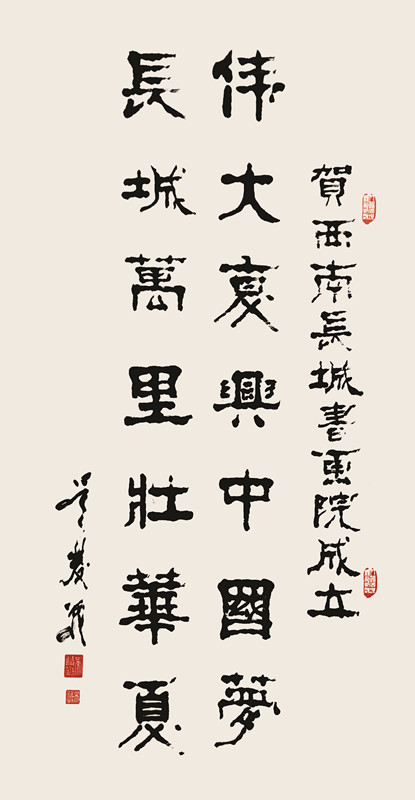 賀西南長城書畫院成立
伟大复興中國夢
長城萬里壯華夏